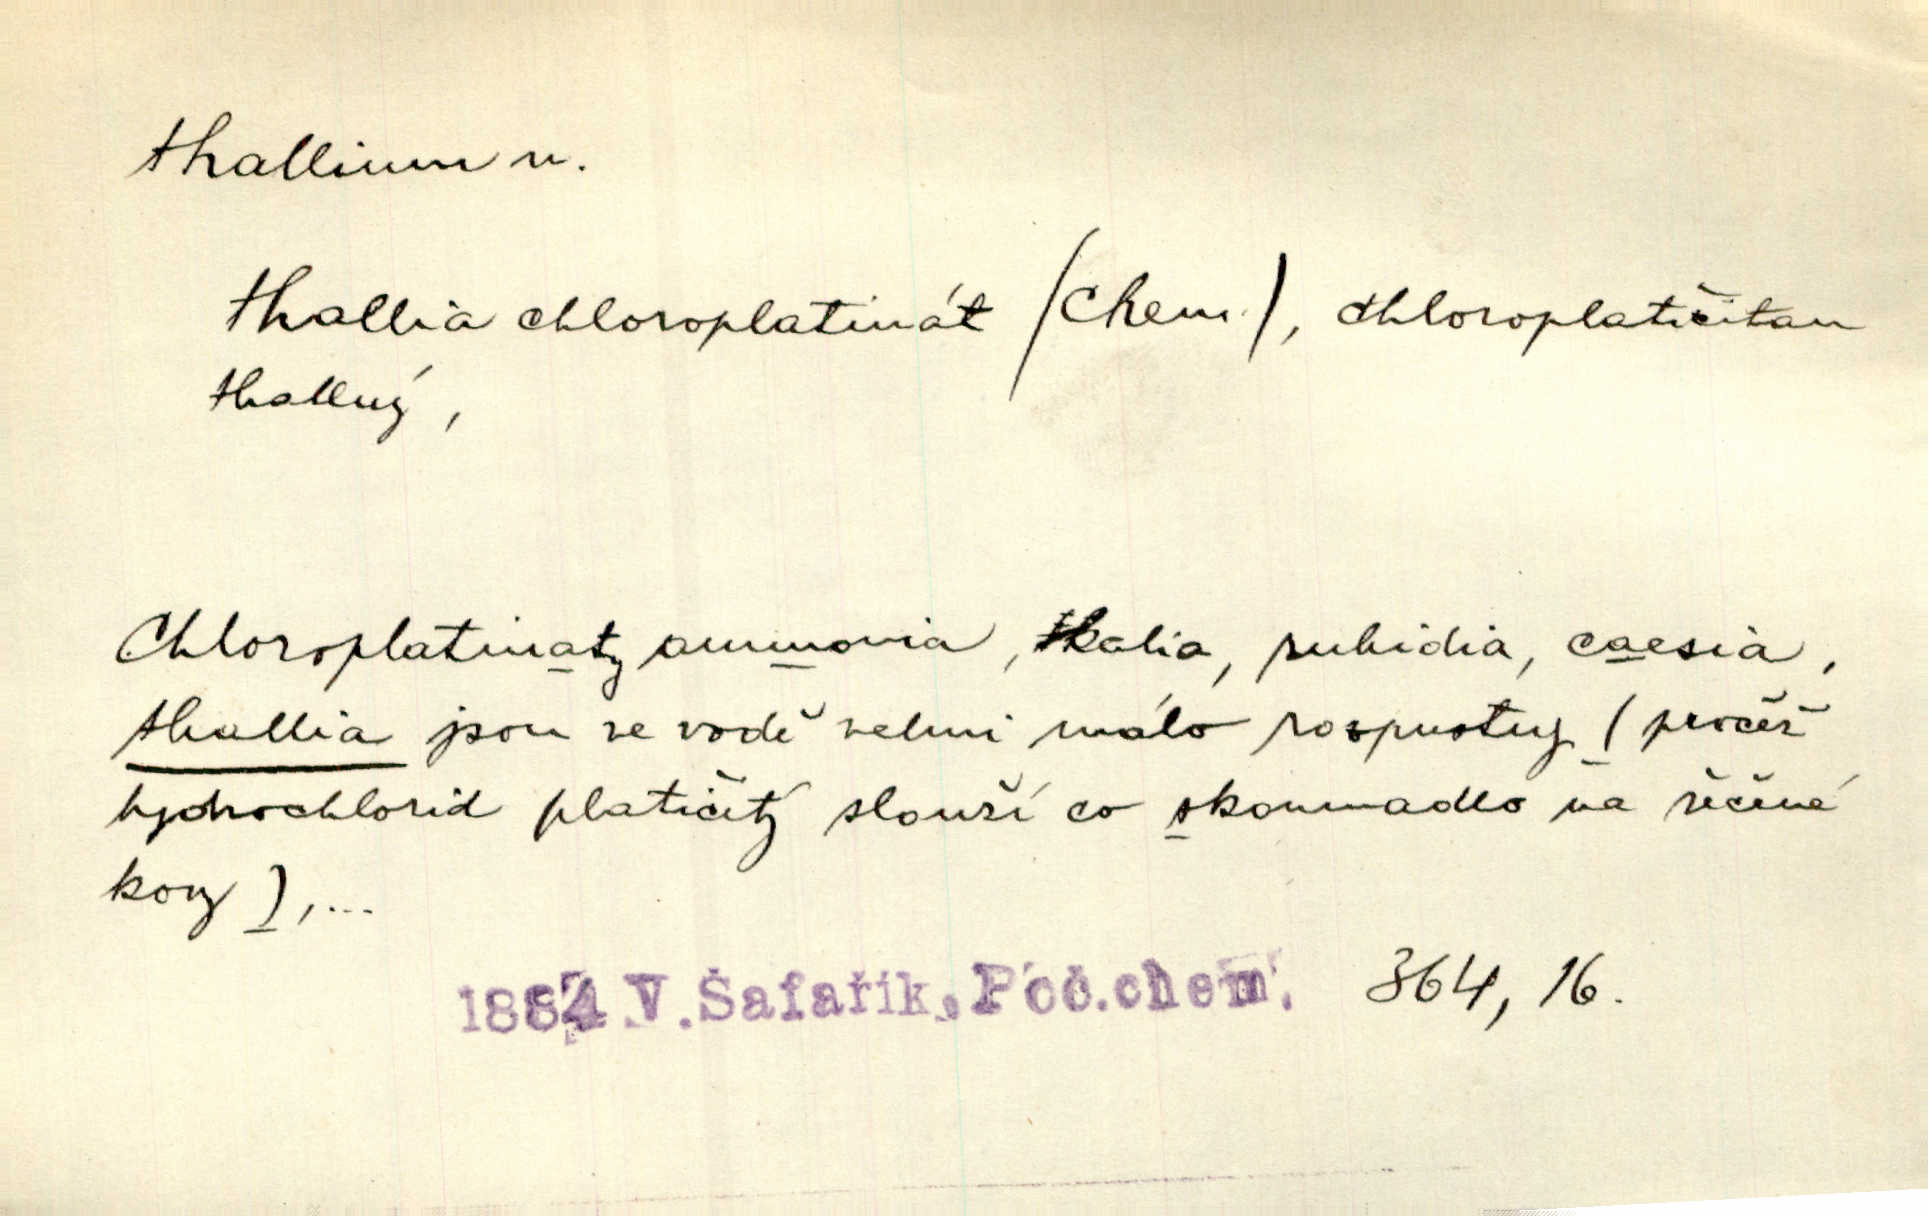 thallium n.
thallia chloroplatinát (Chem.), chloroplatičitan
thallný,
Chloroplatinaty ammonia, kalia, rubidia, caesia,
thallia jsou ve vodě velmi málo rozpustny (pročež
hydrochlorid platičitý slouží co skoumadlo na řečené
kovy), ...
1884 V. Šafařík, Poč. chem. 364, 16.